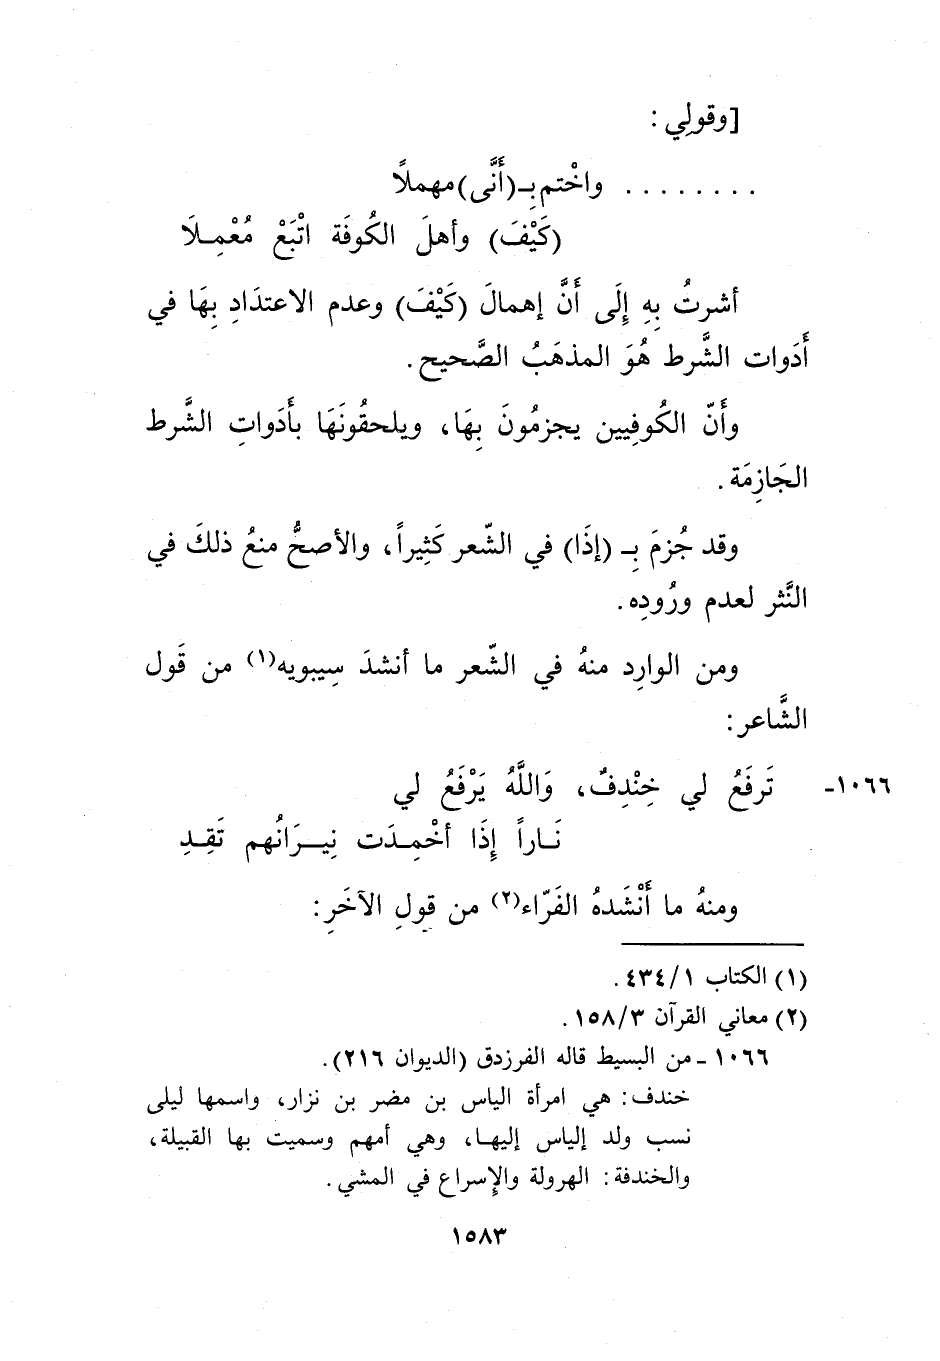 [وقولِي :
. . . . . . . . واخْتم بِـ (أَنَّى) مهملاً
(كَيْفَ) وأهلَ الكُوفَة اتْبَعْ مُعْمِـلاَ
أشرتُ بِهِ إِلَى أَنَّ إهمالَ (كَيْفَ) وعدم الاعتدَادِ بِهَا في
أَدَوات الشَّرط هُوَ المذهَبُ الصَّحيح .
وأَنّ الكُوفِيين يجزمُونَ بِهَا، ويلحقُونَهَا بأَدَواتِ الشَّرط
الجَازِمَة .
وقد جُزمَ بِـ (إذَا) في الشّعر كَثِيراً، والأصحُّ منعُ ذلكَ في
النَّثر لعدم ورُودِه .
ومن الوارِد منهُ في الشّعر ما أنشدَ سِيبويه(١) من قَول
الشَّاعر :
١٠٦٦- تَرفَعُ لي خِنْدِفٌ، وَاللَّهُ يَرْفَعُ لي
نَـاراً إِذَا أخْمِـدَت نِيـرَانُهم تَقِـدِ
ومنهُ ما أَنْشَدهُ الفَرّاء(٢) من قولِ الآخَرِ :
(١) الكتاب ١/ ٤٣٤ .
(٢) معاني القرآن ٣/ ١٥٨ .
١٠٦٦ - من البسيط قاله الفرزدق (الديوان ٢١٦) .
خندف : هي امرأة الياس بن مضر بن نزار، واسمها ليلى
نسب ولد إلياس إليهـا، وهي أمهم وسميت بها القبيلة،
والخندفة : الهرولة والإسراع في المشي .
١٥٨٣